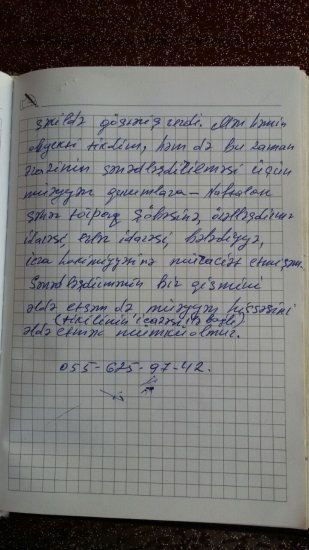 şəkildə göstəriş verdi. Mən həmin
obyekti tikdim, həm də bu zaman
ərazinin sənədləşdirilməsi üçün
müəyyən qurumlara -
şəhər torpaq şöbəsinə, özəlləşdirmə
idarəsi, idarəsi, bələdiyyə,
icra hakimiyyətinə müraciət etmişəm.
Sənədləşdirmənin bir qismini
əldə etsəm də müəyyən hissəsini
(tikilinin icarəsi ilə bağlı)
əldə etmək mümkün olmur.
055-625-97-42.